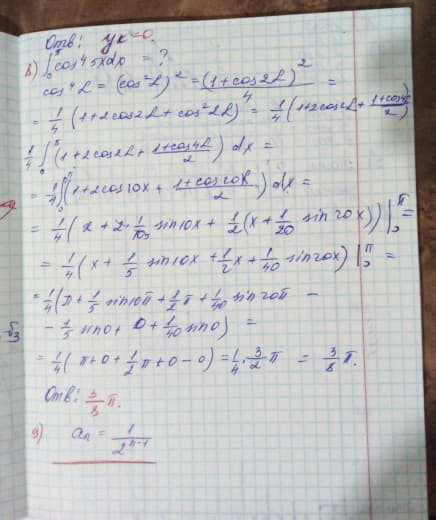 Отв: yк = 0.
8) ∫₀^π cos⁴5x dx = ?
cos⁴L = (cos²L)² = (1+cos2L)²/4 =
= 1/4 (1+2cos2L + cos²2L) = 1/4 (1+2cos2L + (1+cos4L)/2)
1/4 ∫₀^π (1+2cos2L + (1+cos4L)/2) dx =
= 1/4 ∫₀^π (1+2cos10x + (1+cos20x)/2) dx =
= 1/4 (x + 2·1/10 sin10x + 1/2 (x + 1/20 sin20x)) |₀^π =
= 1/4 (x + 1/5 sin10x + 1/2 x + 1/40 sin20x) |₀^π =
= 1/4 (π + 1/5 sin10π + 1/2 π + 1/40 sin20π −
− 1/5 sin0 + 0 + 1/40 sin0) =
√3
= 1/4 (π + 0 + 1/2 π + 0 − 0) = 1/4 · 3/2 π = 3/8 π.
Отв: 3/8 π.
9) aₙ = 1/2ⁿ⁻¹